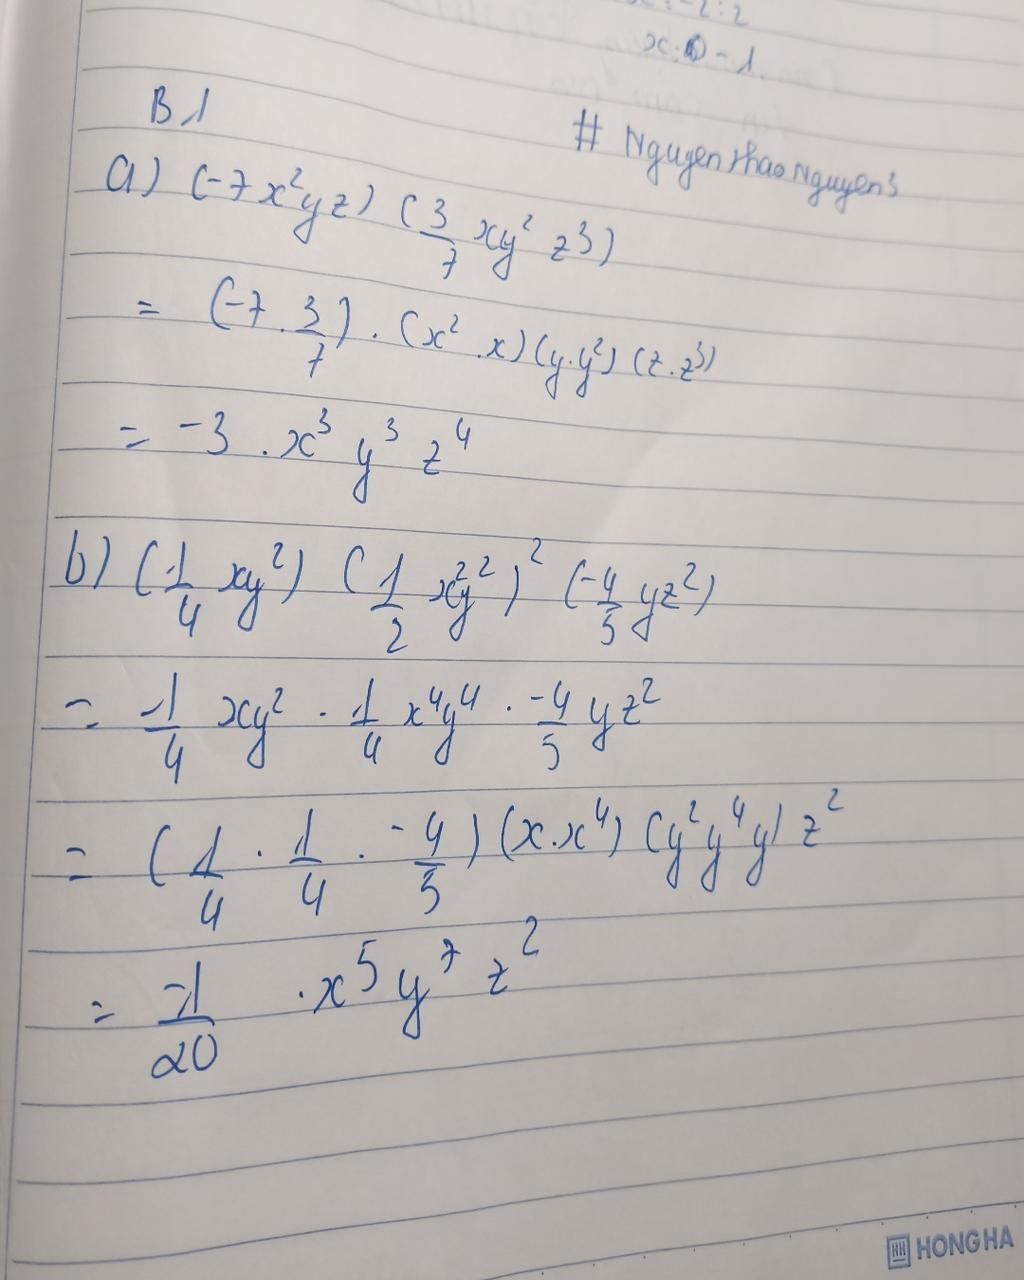 x = -2 : 2
x = -1.
B1
# Nguyenthaonguyen3
a) (-7x²yz) (3/7 xy² z³)
= (-7 . 3/7) . (x² . x) (y.y²) (z.z³)
= -3 . x³ y³ z⁴
b) (1/4 xy²) (1/2 x²y²)² (-4/5 yz²)
= 1/4 xy² . 1/4 x⁴y⁴ . -4/5 yz²
= (1/4 . 1/4 . -4/5) (x.x⁴) (y²y⁴y) z²
= -1/20 . x⁵ y⁷ z²
HONG HA